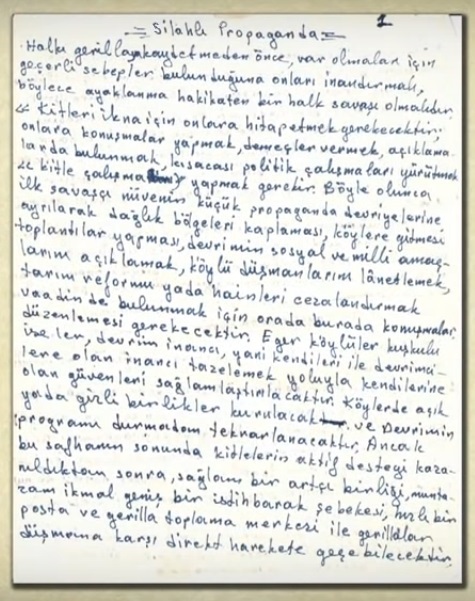 = Silahlı Propaganda = 1
Halkı gerillaya kaydetmeden önce, var olmaları için
geçerli sebepler bulunduğuna onları inandırmalı,
böylece ayaklanma hakikaten bir halk savaşı olmalıdır.
« Kitleri ikna için onlara hitap etmek gerekecektir;
onlara konuşmalar yapmak, demeçler vermek, açıklama-
larda bulunmak, kısacası politik çalışmaları yürütmek
« kitle çalışması yapmak gerekir. Böyle olunca
ilk savaşçı nüvenin küçük propaganda devriyelerine
ayrılarak dağlık bölgeleri kaplaması, köylere gitmesi
toplantılar yapması, devrimin sosyal ve milli amaç-
larını açıklamak, köylü düşmanlarını lânetlemek,
tarım reformu yada hainleri cezalandırmak
vaadinde bulunmak için orada burada konuşmalar
düzenlemesi gerekecektir. Eğer köylüler kuşkulu
iseler, devrim inancı, yani kendileri ile devrimci-
lere olan inancı tazelemek yoluyla kendilerine
olan güvenleri sağlamlaştırılacaktır. Köylerde açık
yada gizli birlikler kurulacak ve Devrimin
programı durmadan tekrarlanacaktır. Ancak
bu safhanın sonunda kitlelerin aktif desteği kaza-
nıldıktan sonra, sağlam bir artçı birliği, munta-
zam ikmal geniş bir istihbarak şebekesi, hızlı bir
posta ve gerilla toplama merkezi ile gerillalar
düşmana karşı direkt harekete geçebilecektir.